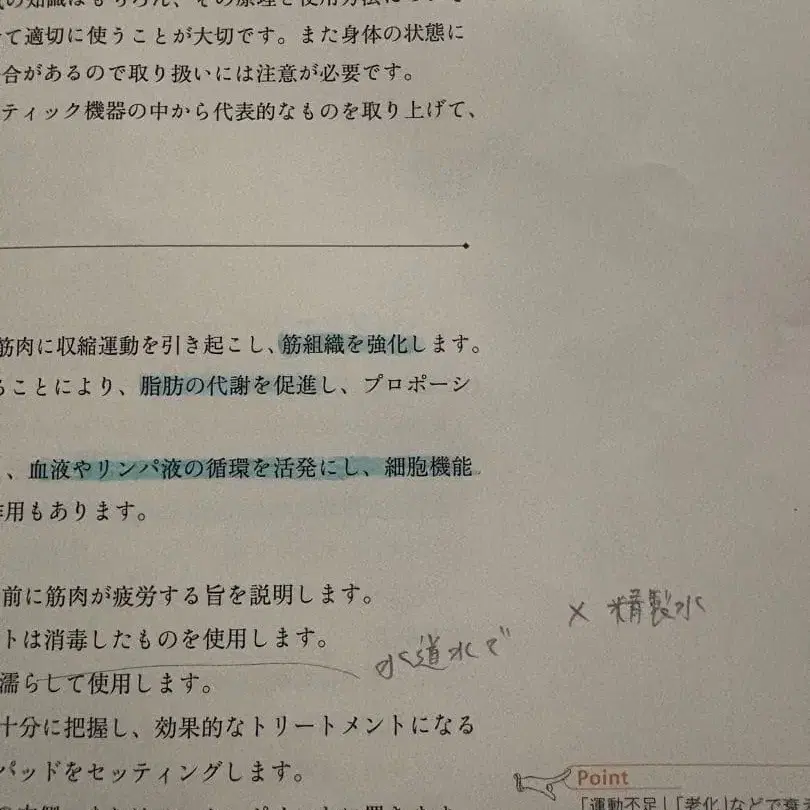 の知識はもちろん、その原理と使用方法について
て適切に使うことが大切です。また身体の状態に
合があるので取り扱いには注意が必要です。
ティック機器の中から代表的なものを取り上げて、
筋肉に収縮運動を引き起こし、筋組織を強化します。
ることにより、脂肪の代謝を促進し、プロポーシ
、血液やリンパ液の循環を活発にし、細胞機能
作用もあります。
前に筋肉が疲労する旨を説明します。
× 精製水
トは消毒したものを使用します。
水道水で
濡らして使用します。
十分に把握し、効果的なトリートメントになる
パッドをセッティングします。
Point
「運動不足」「老化」などで衰え